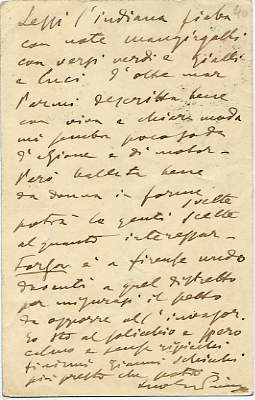 Lessi l'indiana fiaba
con note mangigalli
con versi verdi e gialli
e luci d'oltre mar
Parmi descritta bene
con viva e chiara moda
mi sembra poco soda
d'azione e di motor-
Però ballata bene
da donna in forme svelte
potrà le genti scelte
alquanto interessar-
Forzano è a Firenze nudo
davanti a quel distretto
per misurarsi il petto
da opporre all'invasor.
Io sto al solicchio e spero
calmo e senza ripicchi
finirmi Gianni Schicchi
più presto che potrò